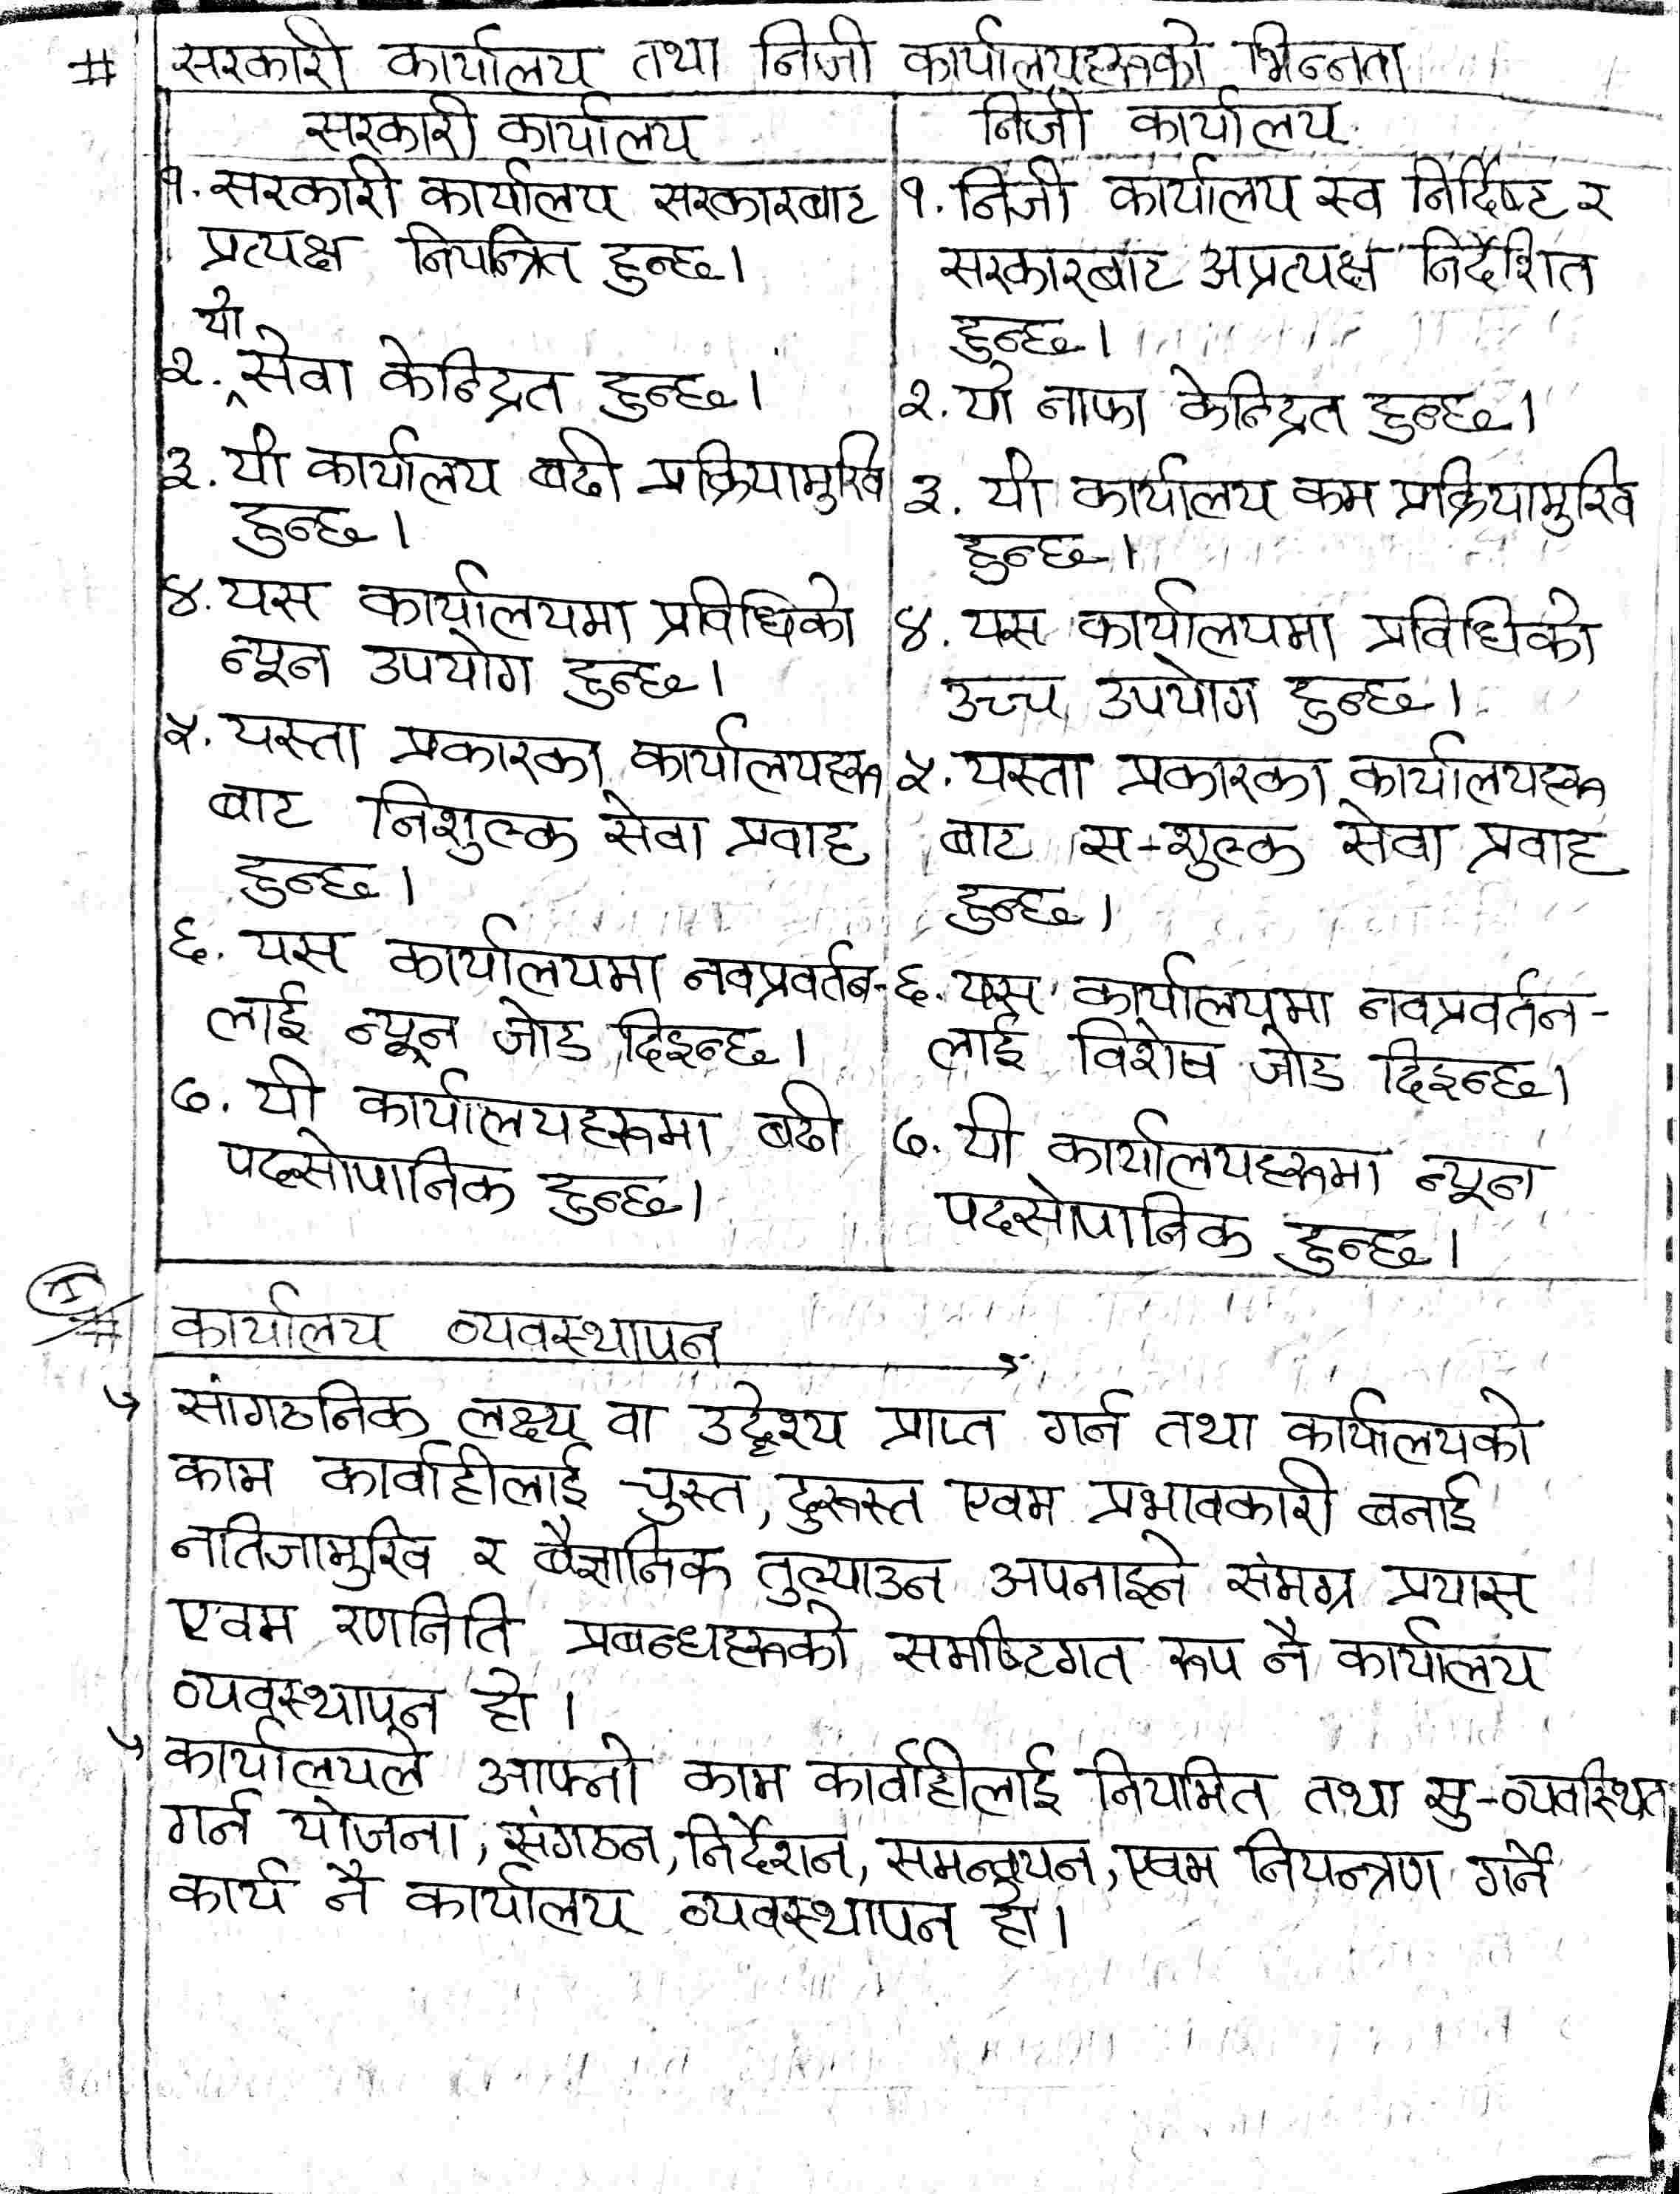 # सरकारी कार्यालय तथा निजी कार्यालयहरूको भिन्नता
सरकारी कार्यालय
१. सरकारी कार्यालय सरकारबाट
प्रत्यक्ष नियन्त्रित हुन्छ।
यो
२. ‸सेवा केन्द्रित हुन्छ।
३. यी कार्यालय बढी प्रक्रियामुखि
हुन्छ।
४. यस कार्यालयमा प्रविधिको
न्यून उपयोग हुन्छ।
५. यस्ता प्रकारका कार्यालयहरू
बाट निशुल्क सेवा प्रवाह
हुन्छ।
६. यस कार्यालयमा नवप्रवर्तन-
लाई न्यून जोड दिइन्छ।
७. यी कार्यालयहरूमा बढी
पदसोपानिक हुन्छ।
निजी कार्यालय
१. निजी कार्यालय स्व निर्दिष्ट र
सरकारबाट अप्रत्यक्ष निर्देशित
हुन्छ।
२. यो नाफा केन्द्रित हुन्छ।
३. यी कार्यालय कम प्रक्रियामुखि
हुन्छ।
४. यस कार्यालयमा प्रविधिको
उच्च उपयोग हुन्छ।
५. यस्ता प्रकारका कार्यालयहरू
बाट स-शुल्क सेवा प्रवाह
हुन्छ।
६. यस कार्यालयमा नवप्रवर्तन-
लाई विशेष जोड दिइन्छ।
७. यी कार्यालयहरूमा न्यून
पदसोपानिक हुन्छ।
# कार्यालय व्यवस्थापन
सांगठनिक लक्ष्य वा उद्देश्य प्राप्त गर्न तथा कार्यालयको
काम कार्वाहीलाई चुस्त, दुरूस्त एवम प्रभावकारी बनाई
नतिजामुखि र बैज्ञानिक तुल्याउन अपनाइने संमग्र प्रयास
एवम रणनिति प्रबन्धहरूको समष्टिगत रूप नै कार्यालय
व्यवस्थापन हो।
कार्यालयले आफ्नो काम कार्वाहीलाई नियमित तथा सु-व्यवस्थित
गर्न योजना, संगठन, निर्देशन, समन्वयन, एवम नियन्त्रण गर्ने
कार्य नै कार्यालय व्यवस्थापन हो।